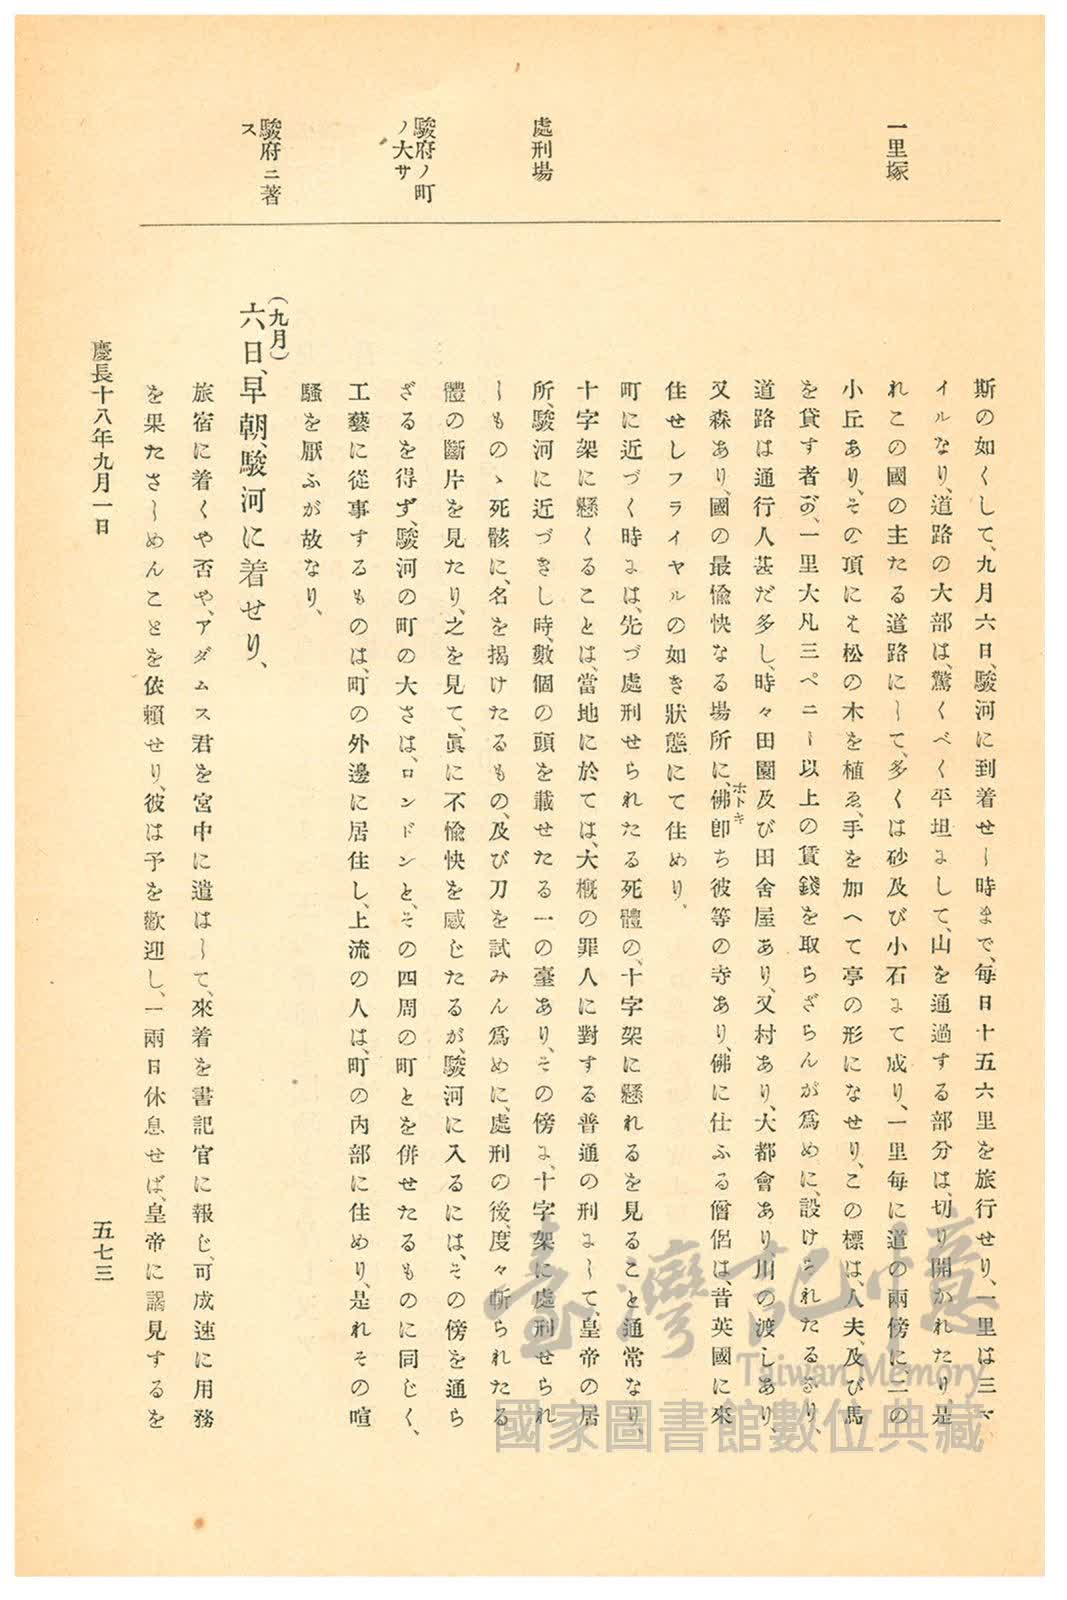 一里塚
處刑場
駿府ノ町
ノ大サ
駿府ニ著
ス
斯の如くして、九月六日、駿河に到着せし時まで、每日十五六里を旅行せり、一里は三マ
イルなり、道路の大部は、驚くべく平坦にして、山を通過する部分は、切り開かれたり、是
れこの國の主たる道路にして、多くは砂及び小石にて成り、一里每に道の兩傍に、二の
小丘あり、その頂には松の木を植ゑ、手を加へて亭の形になせり、この標は、人夫、及び馬
を貸す者が、一里大凡三ペニー以上の賃錢を取らざらんが爲めに、設けられたるなり、
道路は通行人甚だ多し、時々田園及び田舍屋あり、又村あり、大都會あり、川の渡しあり、
又森あり、國の最愉快なる場所に、佛卽ち彼等の寺あり、佛に仕ふる僧侶は、昔英國に來
ホトキ
住せしフライヤルの如き狀態にて住めり。
町に近づく時には、先づ處刑せられたる死體の、十字架に懸れるを見ること通常なり、
十字架に懸くることは、當地に於ては、大槪の罪人に對する普通の刑にして、皇帝の居
所、駿河に近づきし時、數個の頭を載せたる一の臺あり、その傍に、十字架に處刑せられ
しものゝ死骸に、名を揭けたるもの、及び刀を試みん爲めに、處刑の後、度々斬られたる
體の斷片を見たり、之を見て、眞に不愉快を感じたるが、駿河に入るには、その傍を通ら
ざるを得ず、駿河の町の大さは、ロンドンと、その四周の町とを併せたるものに同じく、
工藝に從事するものは、町の外邊に居住し、上流の人は、町の內部に住めり、是れその喧
騷を厭ふが故なり、
（九月）
六日、早朝、駿河に着せり、
旅宿に着くや否や、アダムス君を宮中に遣はして、來着を書記官に報じ、可成速に用務
を果たさしめんことを依賴せり、彼は予を歡迎し、一兩日休息せば、皇帝に謁見するを
慶長十八年九月一日
五七三
臺灣記憶
Taiwan Memory
國家圖書館數位典藏